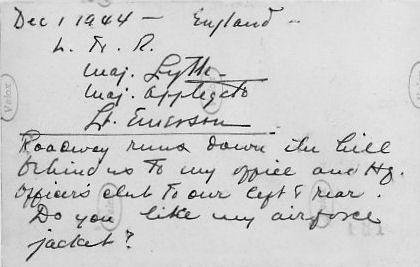 Dec 1 1944 - England -
L. To. R.
Maj. Lytle
Maj. Applegate
Lt. Emerson
Roadway runs down the hill
behind us to my office and Hq.
Officers club to our left & rear.
Do you like my airforce
jacket?
Velox
Velox
181